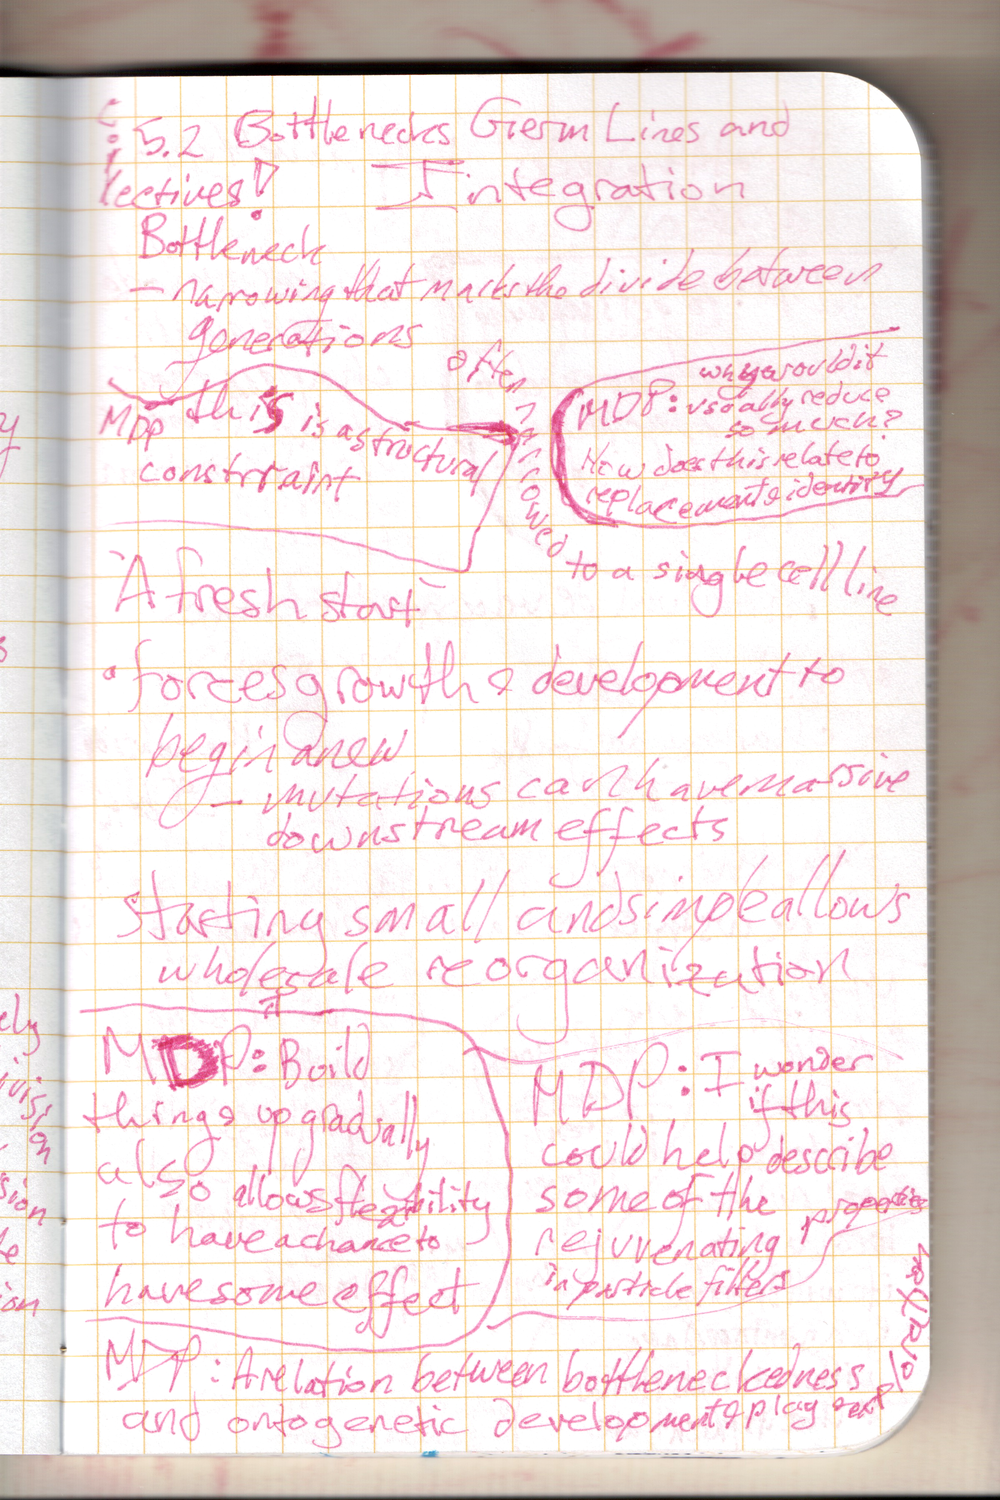 Collectives!
5.2 Bottlenecks Germ Lines and
Integration
Bottleneck
- narrowing that marks the divide between
generations
often narrowed to a single cell line
MDP this is a structural
constraint
MDP: why would it
usually reduce
so much?
How does this relate to
replacement & identity
"A fresh start"
• forces growth & development to
begin anew
- mutations can have massive
downstream effects
Starting small and simple allows
wholesale reorganization
MDP: Build
things up gradually
also allows flexibility
to have a chance to
have some effect
MDP: I wonder
if this
could help describe
some of the
rejuvenating properties
in particle filters
MDP: A relation between bottleneckedness
and ontogenetic development & play and exploration
ely
sion
ion